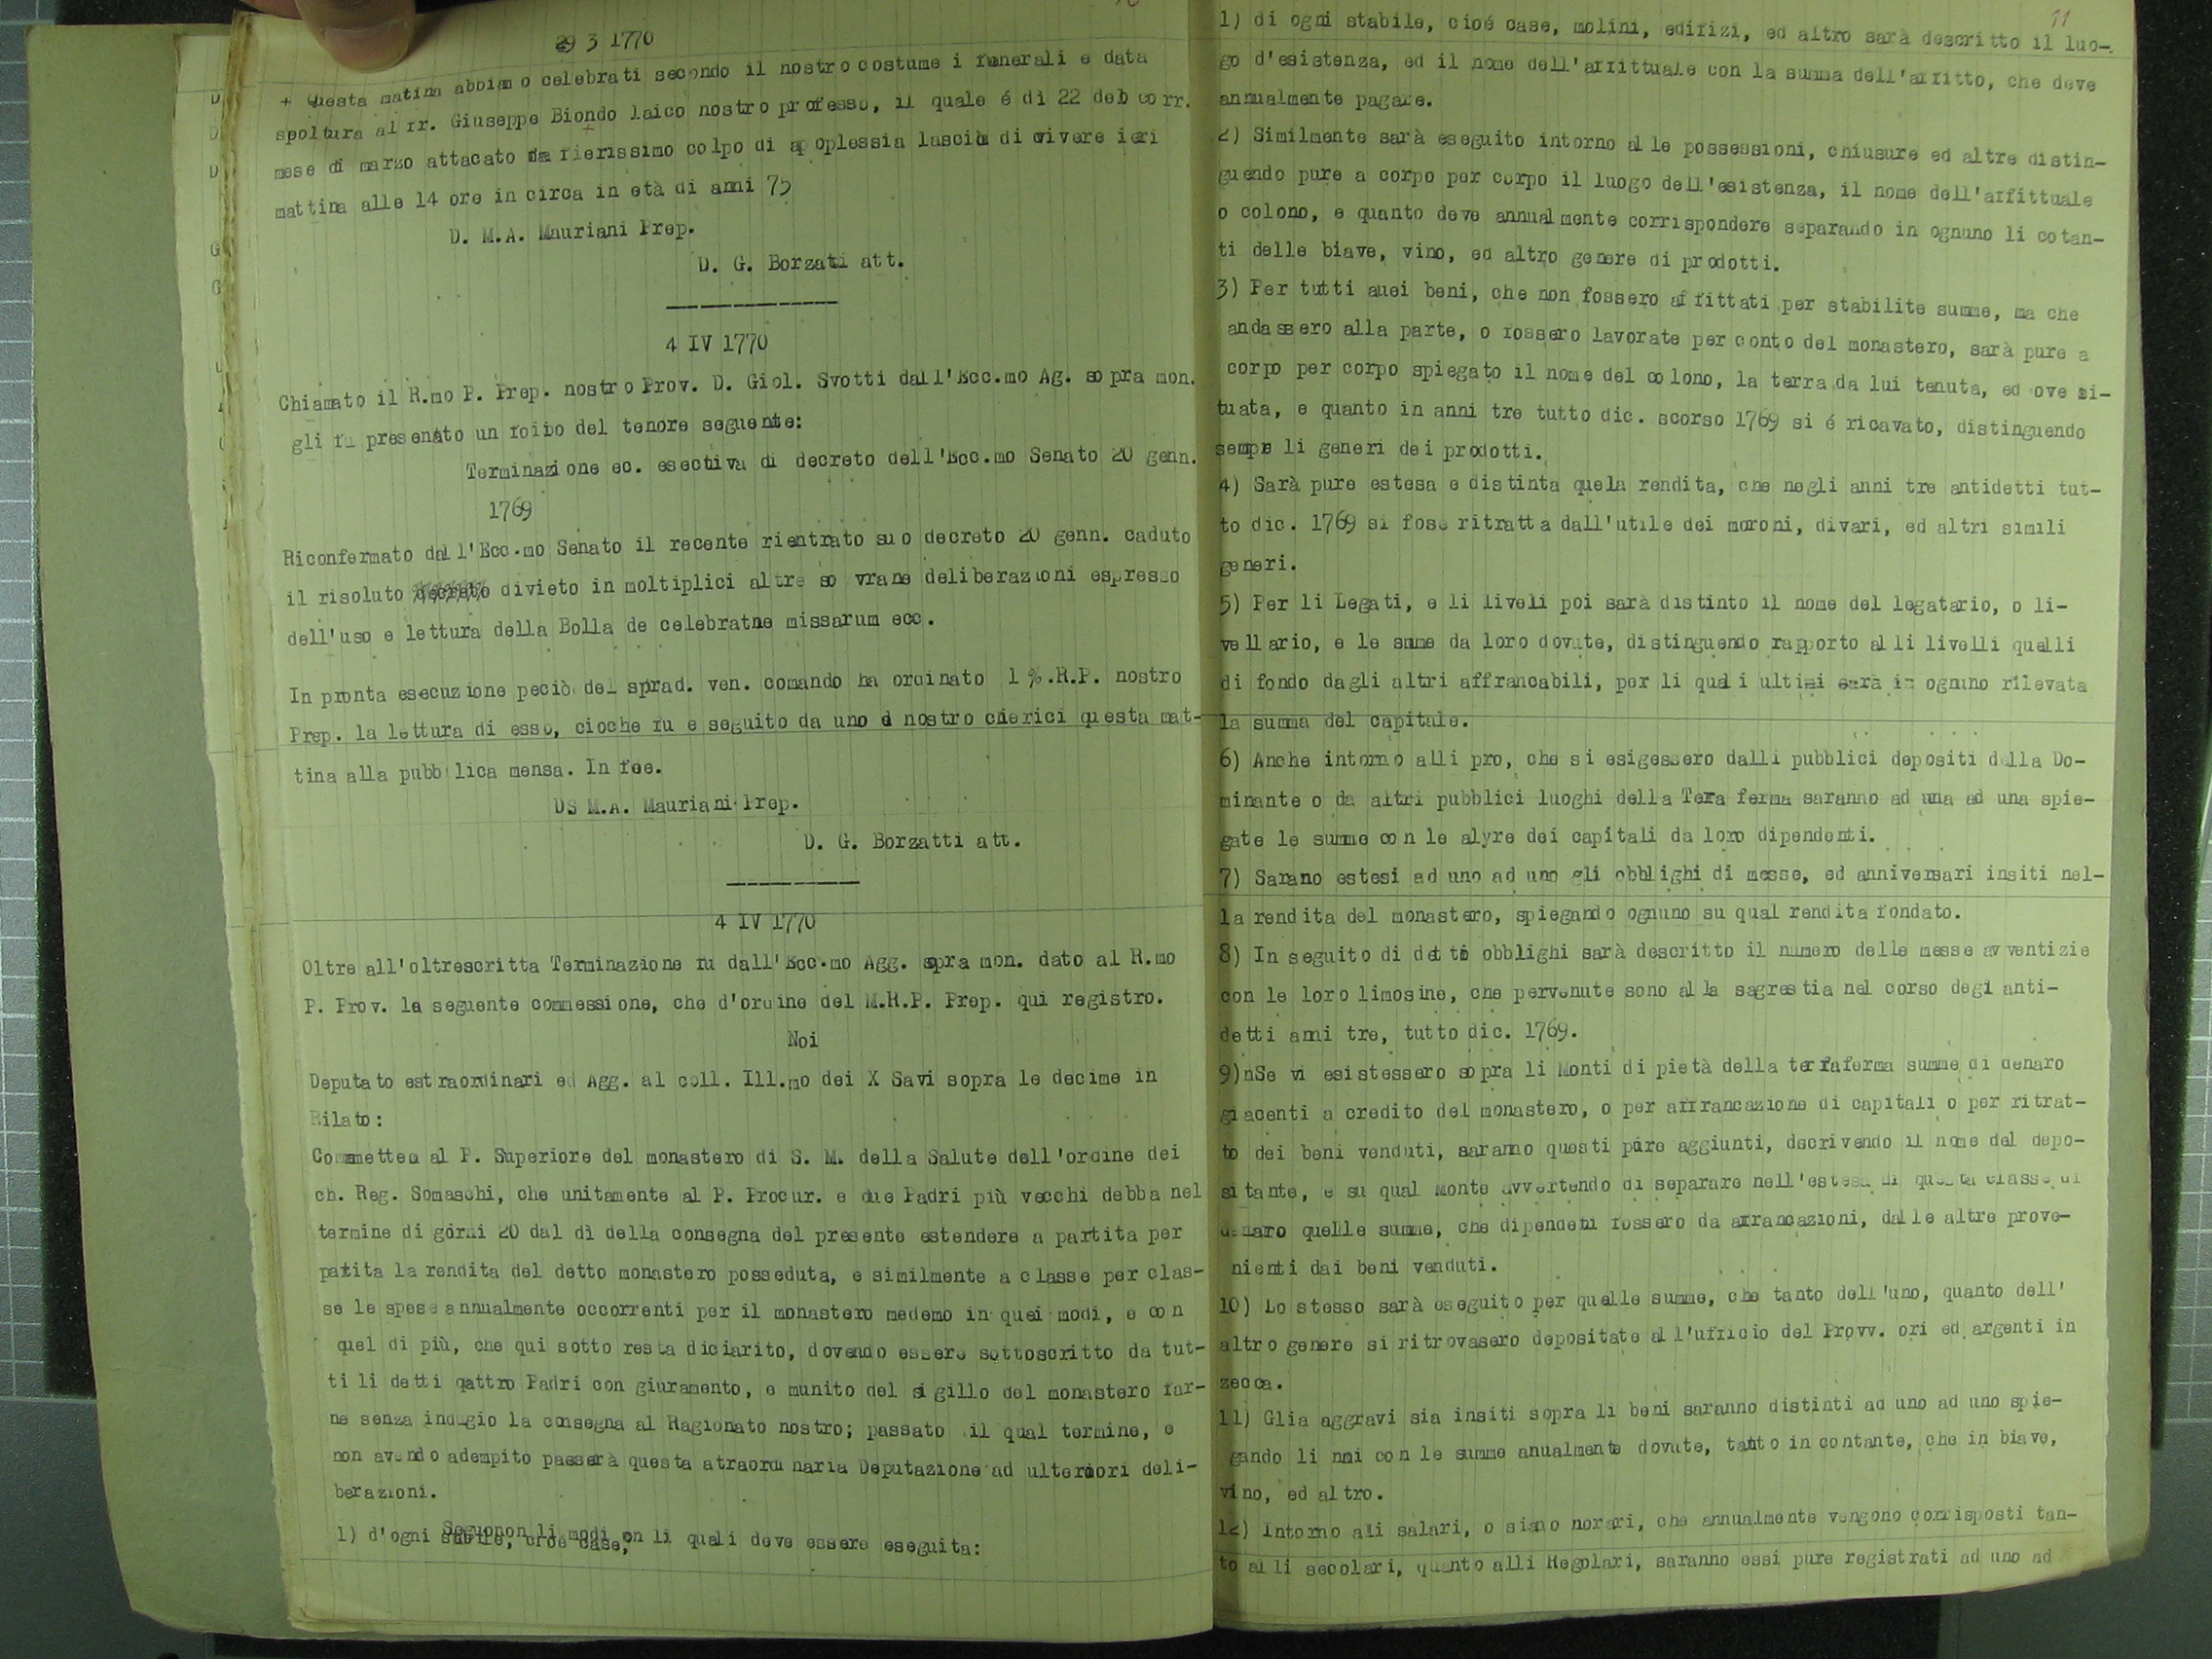 29 3 1770
+ Questa matina abbiamo celebrati secondo il nostro costume i funerali e data
spoltura al fr. Giuseppe Biondo laico nostro professo, il quale é di 22 deb corr.
mese di marzo attacato da fierissimo colpo di apoplessia lasciò di vivere ieri
mattina alle 14 ore in circa in età di anni 75
D. M.A. Mauriani Prep.
D. G. Borzati att.
4 IV 1770
Chiamato il R.mo P. Prep. nostro Prov. D. Giol. Svotti dall'Ecc.mo Ag. sopra mon.
gli fu presenato un folio del tenore seguente:
Terminazione ec. esectiva di decreto dell'Ecc.mo Senato 20 genn.
1769
Riconfermato dall'Ecc.mo Senato il recente rientrato suo decreto 20 genn. caduto
il risoluto decreto divieto in moltiplici altre sovrane deliberazioni espresso
dell'uso e lettura della Bolla de celebratne missarum ecc.
In pronta esecuzione peciò del sprad. ven. comando ha ordinato 1%.R.P. nostro
Prep. la lettura di esso, cioche fu eseguito da uno d nostro cherici questa mat-
tina alla pubblica mensa. In fee.
DS M.A. Mauriani Prep.
D. G. Borzatti att.
4 IV 1770
Oltre all'oltrescritta Terminazione fu dall'Ecc.mo Agg. spra mon. dato al R.mo
P. Prov. la seguente commessione, che d'oruine del M.R.P. Prep. qui registro.
Noi
Deputato estraordinari ed Agg. al coll. Ill.mo dei X Savi sopra le decime in
Rilato:
Commetteu al P. Superiore del monastero di S. M. della Salute dell'ordine dei
ch. Reg. Somaschi, che unitamente al P. Procur. e due Padri più vecchi debba nel
termine di gorni 20 dal dì della consegna del presente estendere a partita per
patita la rendita del detto monastero posseduta, e similmente a classe per clas-
se le spese annualmente occorrenti per il monastero medemo in quei modi, e con
quel di più, che qui sotto resta diciarito, dovendo essere sottoscritto da tut-
ti li detti qattro Padri con giuramento, e munito del sigillo del monastero far-
ne senza indugio la consegna al Ragionato nostro; passato il qual termine, e
non avendo adempito passerà questa atraordinaria Deputazione ad ulteriori deli-
berazioni.
Seguonon li modi on li quali deve essere eseguita:
1) d'ogni stabile, cioé case,
11
1) di ogni stabile, cioé case, molini, edifizi, ed altro sarà descritto il luo-
go d'esistenza, ed il nome dell'affittuale con la summa dell'affitto, che deve
annualmente pagare.
2) Similmente sarà eseguito intorno alle possessioni, chiusure ed altre distin-
guendo pure a corpo per corpo il luogo dell'esistenza, il nome dell'affittuale
o colono, e quanto deve annualmente corrispondere separando in ognuno li cotan-
ti delle biave, vino, ed altro genere di prodotti.
3) Per tutti auei beni, che non fossero affittati per stabilite summe, ma che
andassero alla parte, o fossero lavorate per conto del monastero, sarà pure a
corpo per corpo spiegato il nome del colono, la terra da lui tenuta, ed ove si-
tuata, e quanto in anni tre tutto dic. scorso 1769 si é ricavato, distinguendo
sempre li generi dei prodotti.
4) Sarà pure estesa e distinta quela rendita, che negli anni tre antidetti tut-
to dic. 1769 si fose ritratta dall'utile dei moroni, divari, ed altri simili
generi.
5) Per li Legati, e li liveli poi sarà distinto il nome del legatario, o li-
vellario, e le sume da loro dovute, distinguendo rapporto alli livelli quelli
di fondo dagli altri affrancabili, per li quali ultimi sarà in ognuno rilevata
la summa del capitale.
6) Anche intorno alli pro, che si esigessero dalli pubblici depositi della Do-
minante o da altri pubblici luoghi della Tera ferma saranno ad una ad una spie-
gate le summe con le alyre dei capitali da loro dipendenti.
7) Sarano estesi ad uno ad uno gli obblighi di messe, ed anniversari insiti nel-
la rendita del monastero, spiegando ognuno su qual rendita fondato.
8) In seguito di detti obblighi sarà descritto il numero delle messe avventizie
con le loro limosine, che pervenute sono alla sagrestia nel corso degi anti-
detti anni tre, tutto dic. 1769.
9)nSe vi esistessero sopra li Monti di pietà della terraferma summe di denaro
giacenti a credito del monastero, o per affrancazione di capitali o per ritrat-
to dei beni venduti, saranno questi pure aggiunti, decrivendo il nome del depo-
sitante, e su qual Monte avvertendo di separare nell'estesa di questa classe di
denaro quelle summe, che dipendeti fossero da affrancazioni, dalle altre prove-
nienti dai beni venduti.
10) Lo stesso sarà eseguito per quelle summe, che tanto dell'uno, quanto dell'
altro genere si ritrovasero depositate all'ufficio del Provv. ori ed argenti in
zecca.
11) Glia aggravi sia insiti sopra li beni saranno distinti ad uno ad uno spie-
gando li nmi con le summe anualmente dovute, tanto in contante, che in biave,
vino, ed altro.
12) Intorno ali salari, o siano norari, che annualmente vengono corrisposti tan-
to alli secolari, quanto alli Regolari, saranno essi pure registrati ad uno ad